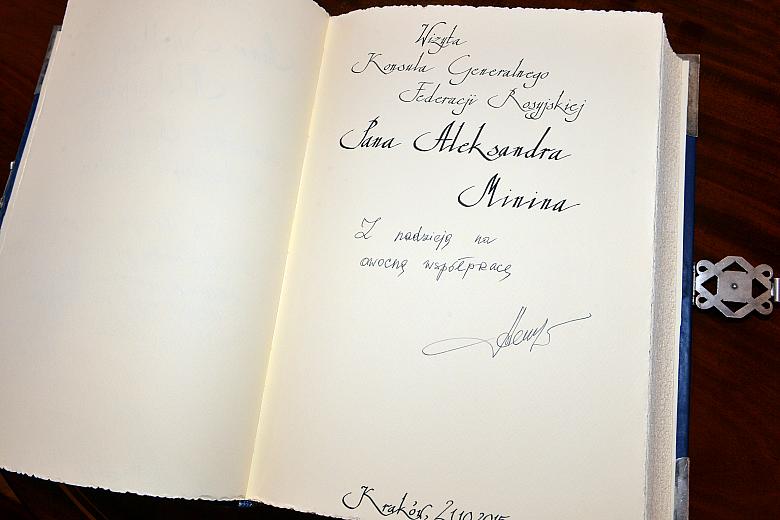 Wizyta
Konsula Generalnego
Federacji Rosyjskiej
Pana Aleksandra
Minina
Z nadzieją na
owocną współpracę
Kraków, 21.10.2015